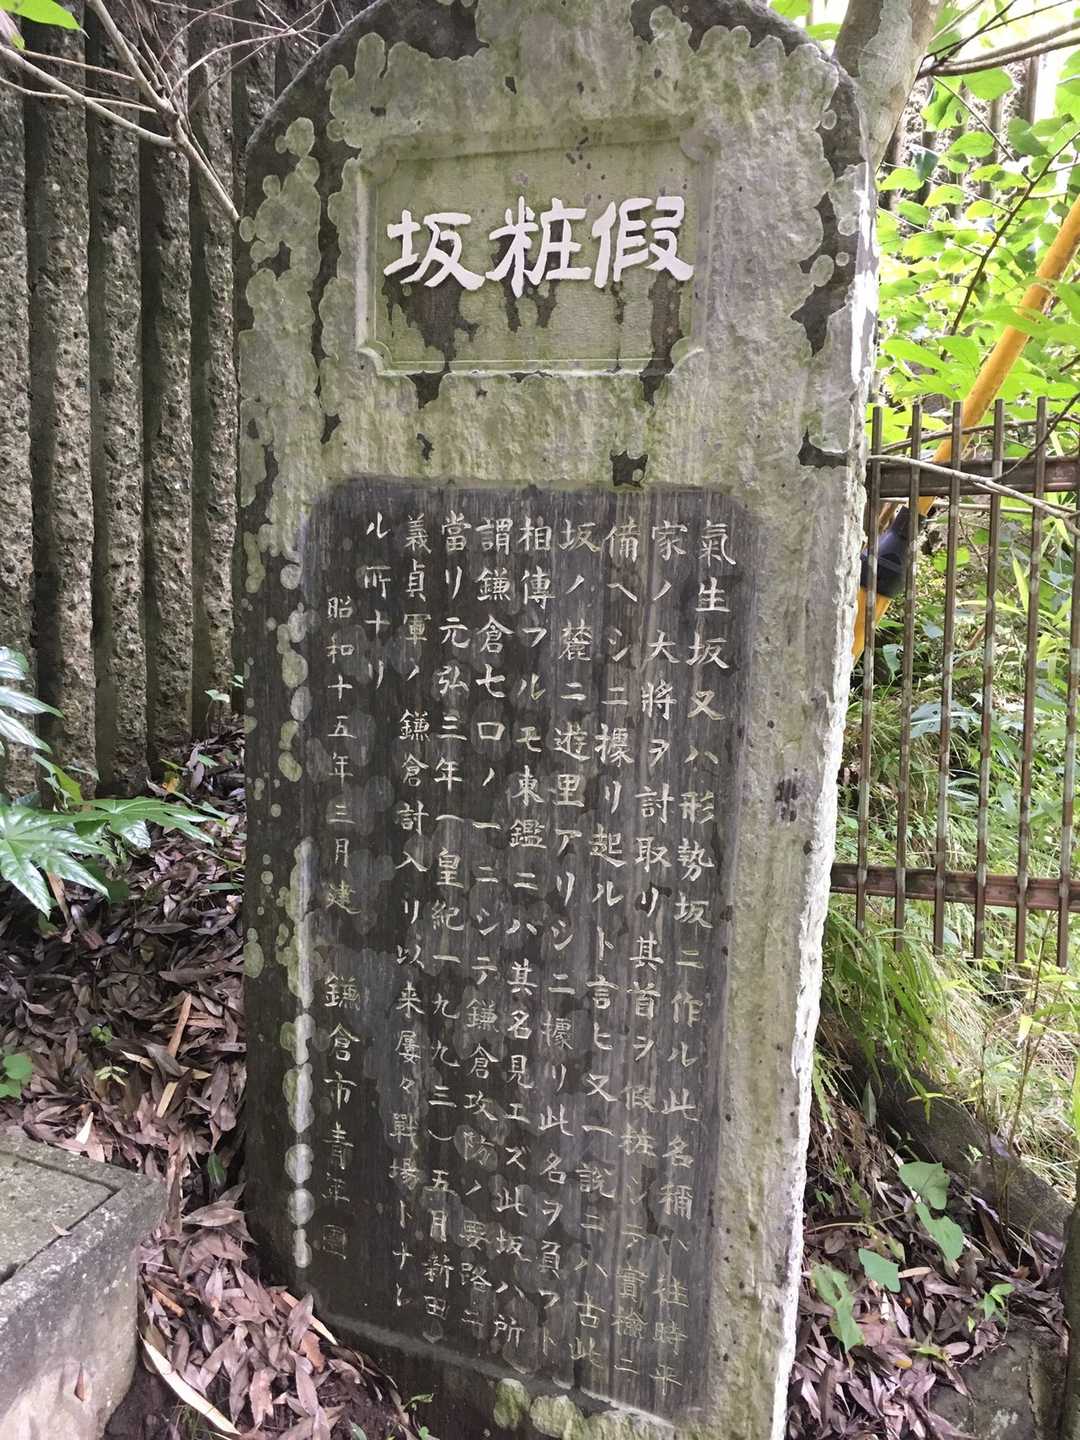 假粧坂
氣生坂又ハ形勢坂ニ作ル此名稱ハ往時平
家ノ大將ヲ討取リ其首ヲ假粧シテ實檢ニ
備ヘシニ據リ起ルト言ヒ又一説ニハ古此
坂ノ麓ニ遊里アリシニ據リ此名ヲ負フト
相傳フルモ東鑑ニハ其名見エズ此坂ハ所
謂鎌倉七口ノ一ニシテ鎌倉攻防ノ要路ニ
當リ元弘三年(皇紀一九九三)五月新田
義貞軍ノ鎌倉討入リ以来屢々戰場トナレ
ル所ナリ
昭和十五年三月建 鎌倉市青年團